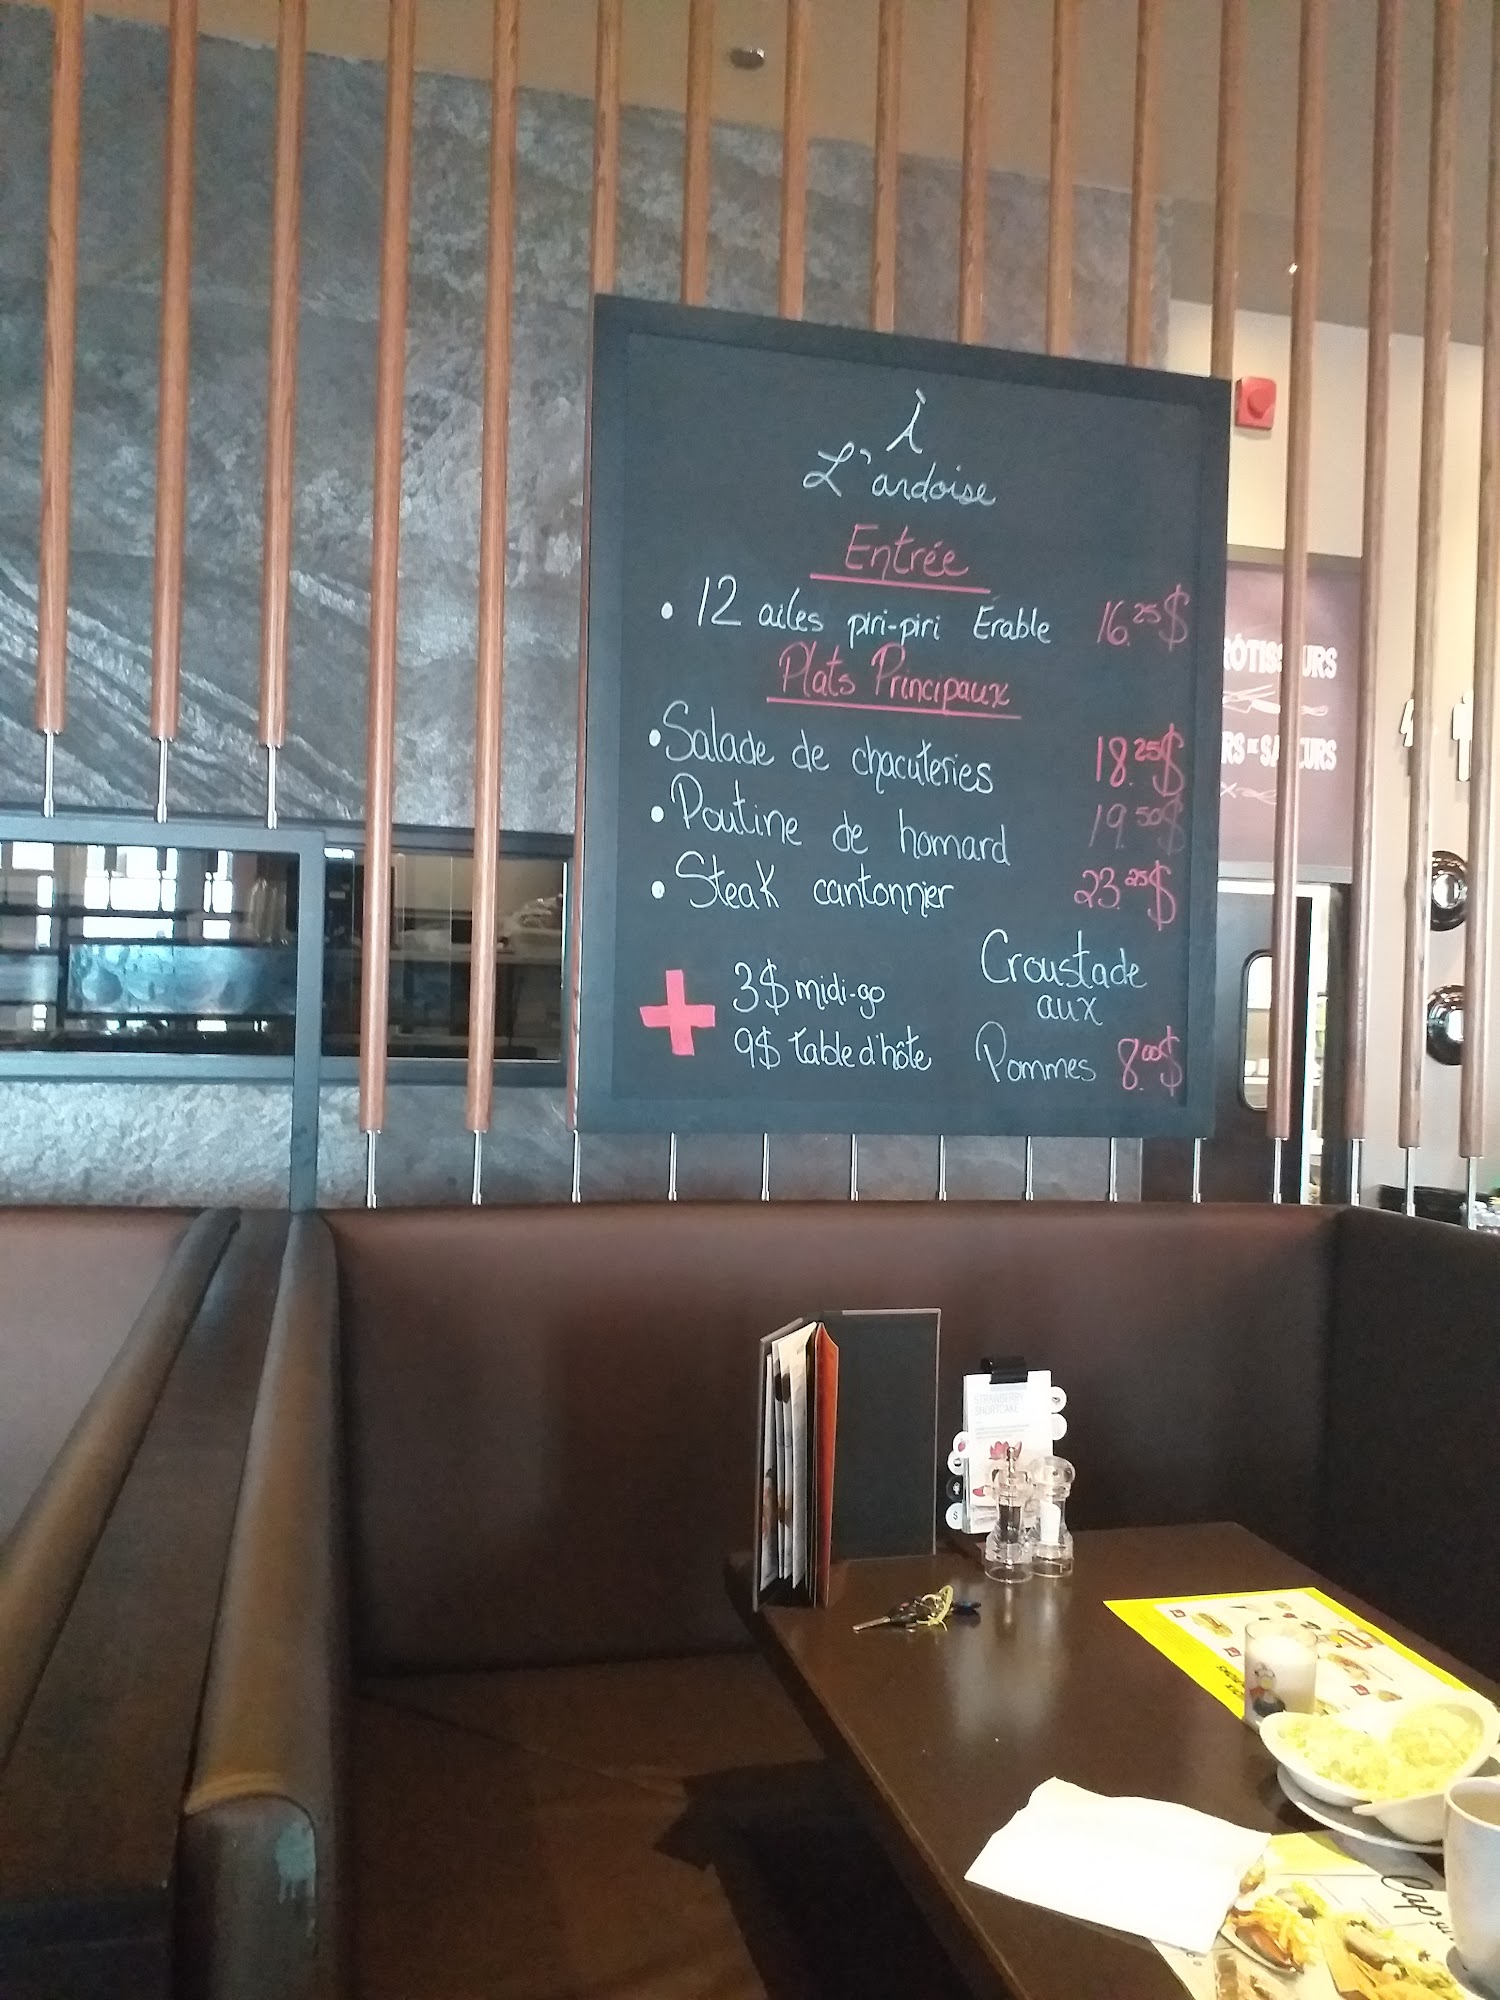 À
L'ardoise
Entrée
• 12 ailes piri-piri Érable 16.25$
Plats Principaux
• Salade de chacuteries 18.25$
• Poutine de homard 19.50$
• Steak cantonnier 23.25$
+ 3$ midi-go
9$ table d'hôte
Croustade
aux
Pommes 8.00$
STRAWBERRY
SHORTCAKE
S
Cap